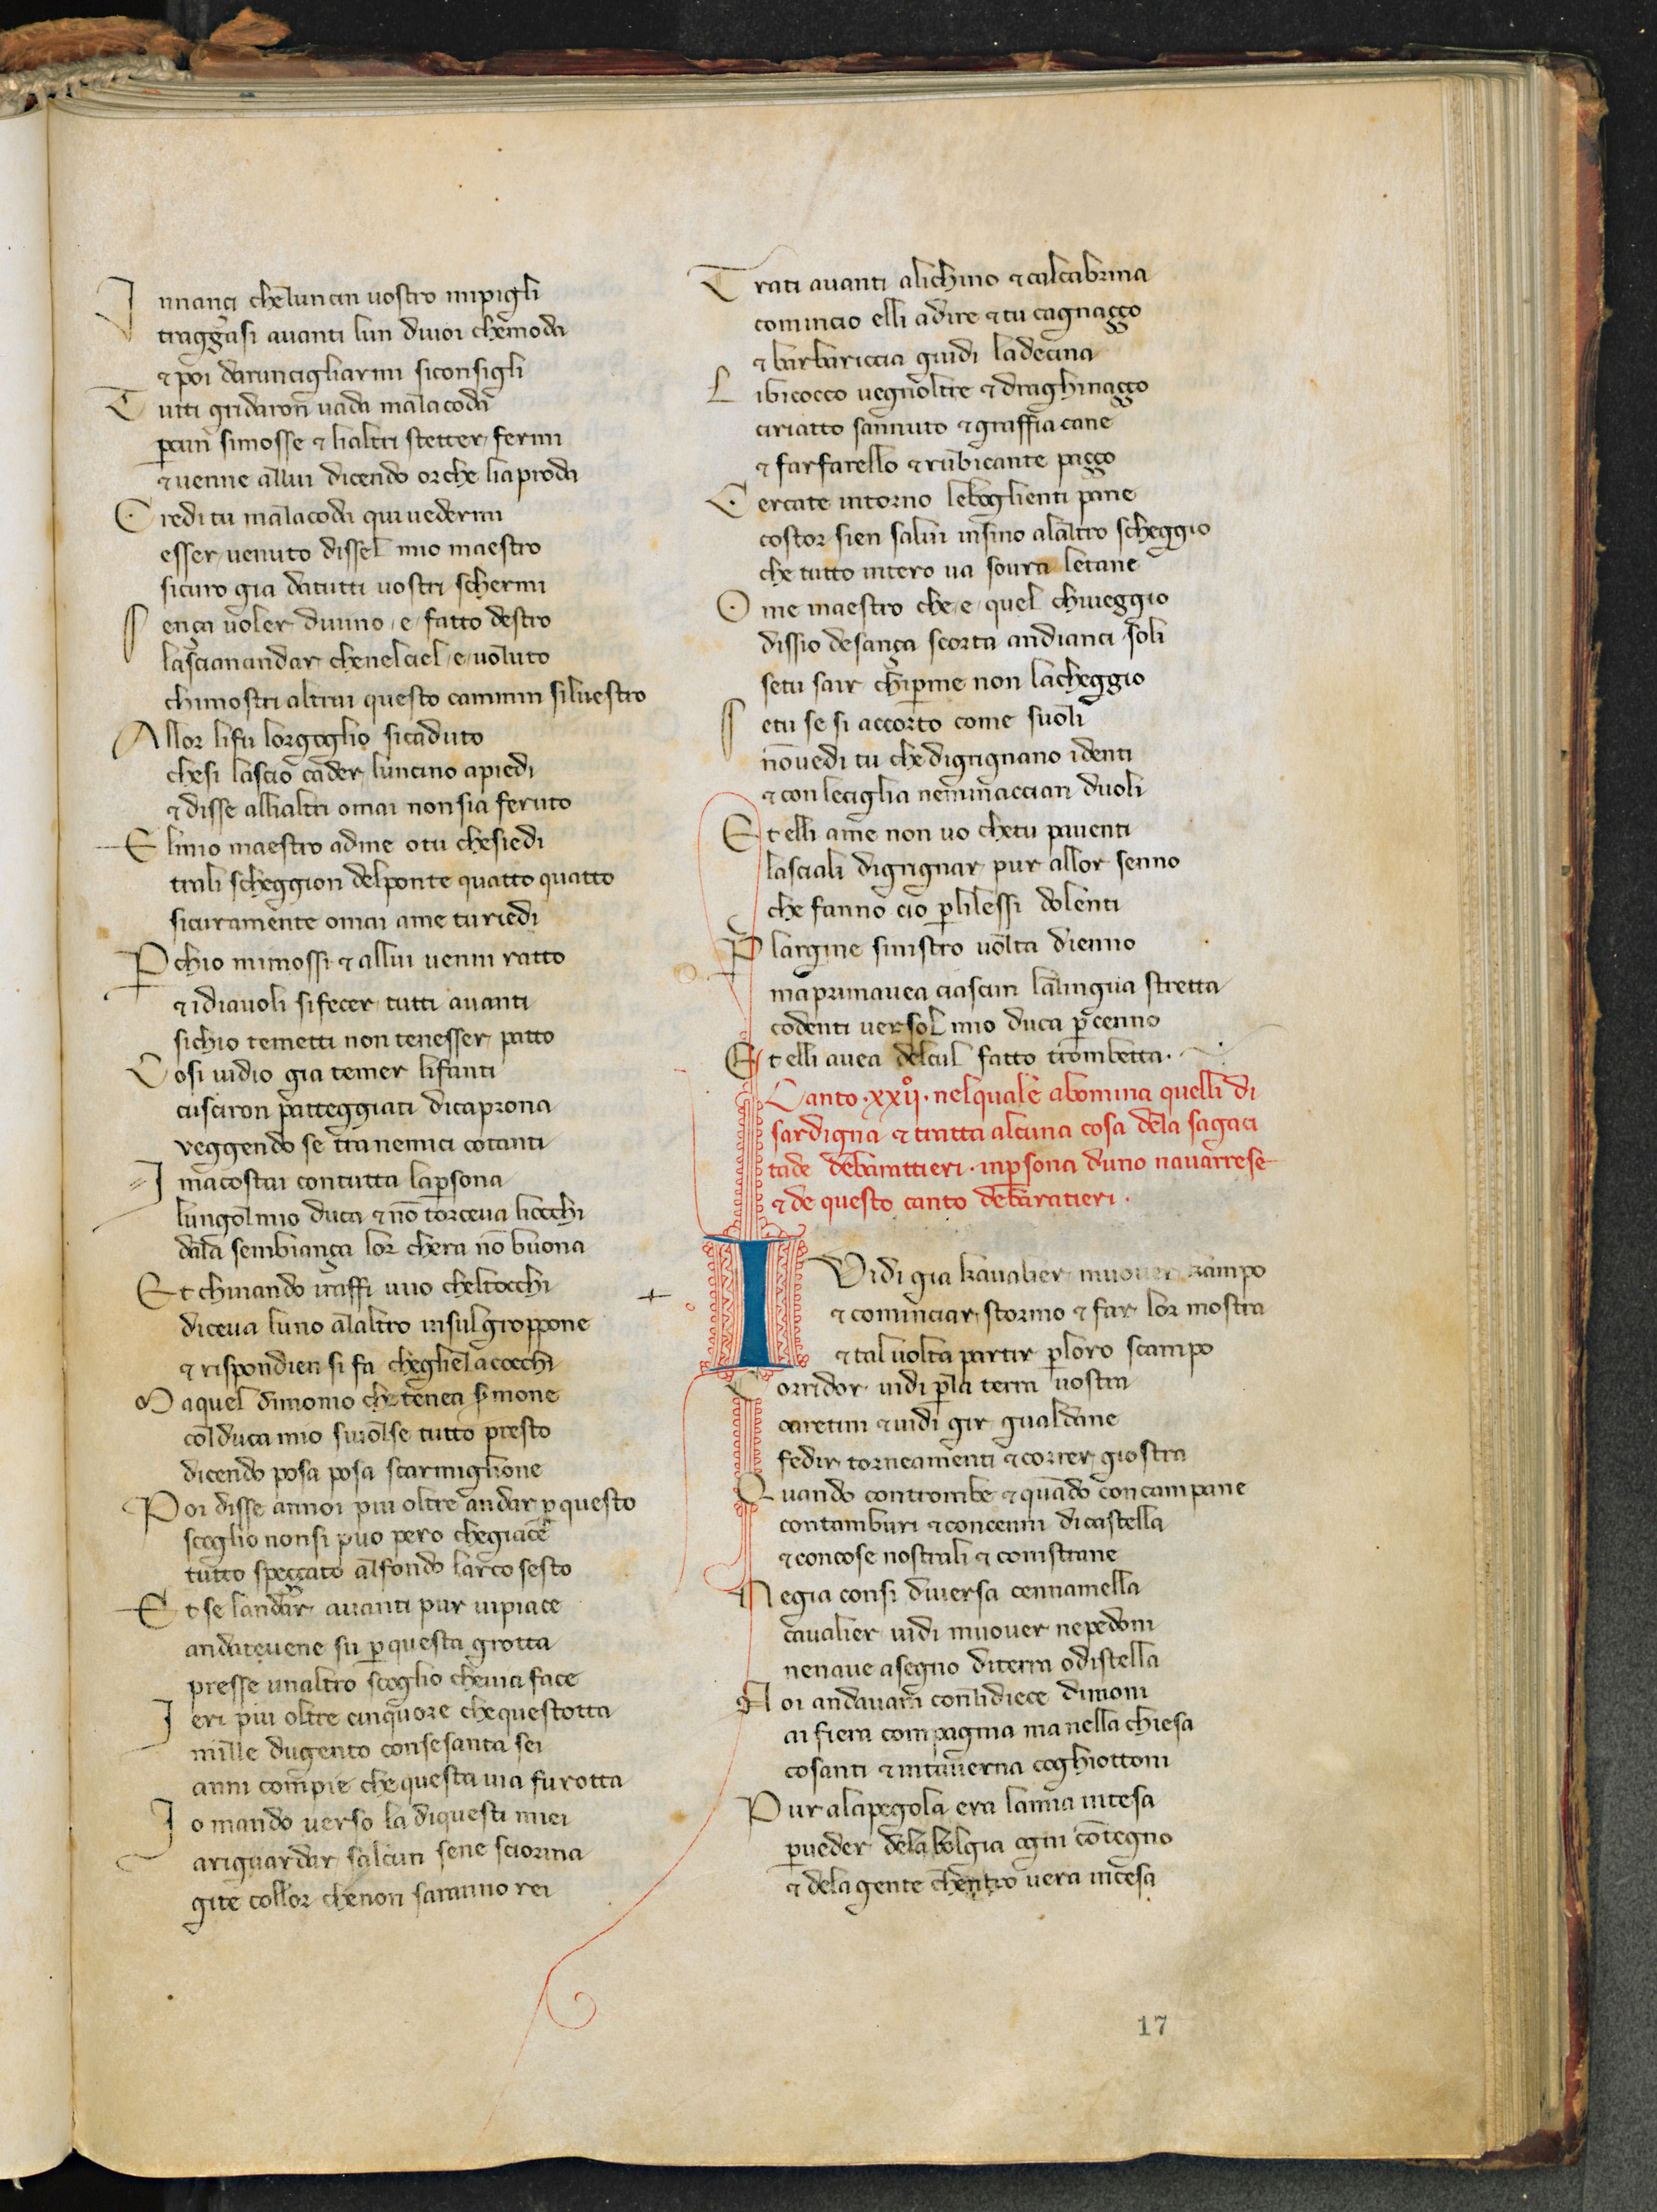 Innançi cheluncin uostro mipigli
traggasi auanti lun diuoi chemoda
⁊ poi darunciglarmi siconsigli
Tutti gridaron uada malacoda
perun simosse ⁊ lialtri stetter fermi
⁊ uenne allui dicendo orche liaproda
Credi tu malacoda qui uedermi
esser uenuto dissel mio maestro
sicuro gia datutti uostri schermi
Sença uoler diuino e fatto destro
lascianandar chenelciel e uoluto
chimostri altrui questo cammin siluestro
Allor lifu lorgoglio sicaduto
chesi lascio cader luncino apiedi
⁊ disse allialtri omai nonsia feruto
Elmio maestro adme otu chesiedi
trali scheggion delponte quatto quatto
sicuramente omai ame turiedi
Pchio mimossi ⁊ allui uenni ratto
⁊ idiauoli sifecer tutti auanti
sichio temetti non tenesser patto
Cosi uidio gia temer lifanti
cusciron patteggiati dicaprona
veggendo se tranemici cotanti
Imacostai contutta lapersona
lungolmio duca ⁊ nō torceua liocchi
dala sembiança lor chera nō buona
Et chinando iraffi uuo cheltocchi
diceua luno alaltro insulgroppone
⁊ rispondien si fa cheglielacocchi
Maquel dimonio chetenea sermone
colduca mio siuolse tutto presto
dicendo posa posa scarmiglione
Poi disse annoi piu oltre andar p questo
scoglio nonsi puo pero chegiace
tutto speççato alfondo larco sesto
Et se landar auanti pur uipiace
andateuene su p questa grotta
presse unaltro scoglio cheuia face
Ieri piu oltre cinquore chequestotta
mille dugento consesanta sei
anni compie chequesta uia furotta
Io mando uerso la diquesti miei
ariguardar salcun sene sciorina
gite collor chenon saranno rei
Trati auanti alichino ⁊ calcabrina
comincio elli adire ⁊ tu cagnaçço
⁊ barbariccia guidi ladecina
Libicocco uegnoltre ⁊ draghinaçço
ciriatto sannuto ⁊ graffiacane
⁊ farfarello ⁊ rubicante paçço
Cercate intorno leboglienti pane
costor sien salui insino alaltro scheggio
che tutto intero ua soura letane
Ome maestro che e quel chiueggio
dissio desança scorta andianci soli
setu sair chiperme non lacheggio
Setu se si accorto come suoli
nōuedi tu chedigrignano identi
⁊ con leciglia neminaccian duoli
Et elli ame non uo chetu pauenti
lasciali digrignar pur allor senno
che fanno cio plilessi dolenti
Plargine sinistro uolta dienno
maprimauea ciascun lalingua stretta
codenti uersol mio duca pcenno
Et elli auea delcul fatto trombetta.
Canto .xxij°. nelquale abomina quelli di
sardigna ⁊ tratta alcuna cosa dela sagaci
tade debarattieri. inpersona duno nauarrese
⁊ de questo canto debaratieri.
IVidi gia kaualier muouer kampo
⁊ cominciar stormo ⁊ far lor mostra
⁊ tal uolta partir ploro scampo
Corridor uidi pla terra uostra
oaretini ⁊ uidi gir gualdane
fedir torneamenti ⁊ correr giostra
Quando contrombe ⁊ quādo concampane
contamburi ⁊ concenni dicastella
⁊ concose nostrali ⁊ constrane
Negia consi diuersa cennamella
caualier uidi muouer nepedoni
nenaue asegno diterra odistella
Noi andauam conlidiece dimoni
ai fiera compagnia ma nella chiesa
cosanti ⁊ intauerna coghiottoni
Pur alapegola era lamia intesa
pueder dela bolgia ogni cōtegno
⁊ delagente chentro uera incesa
17